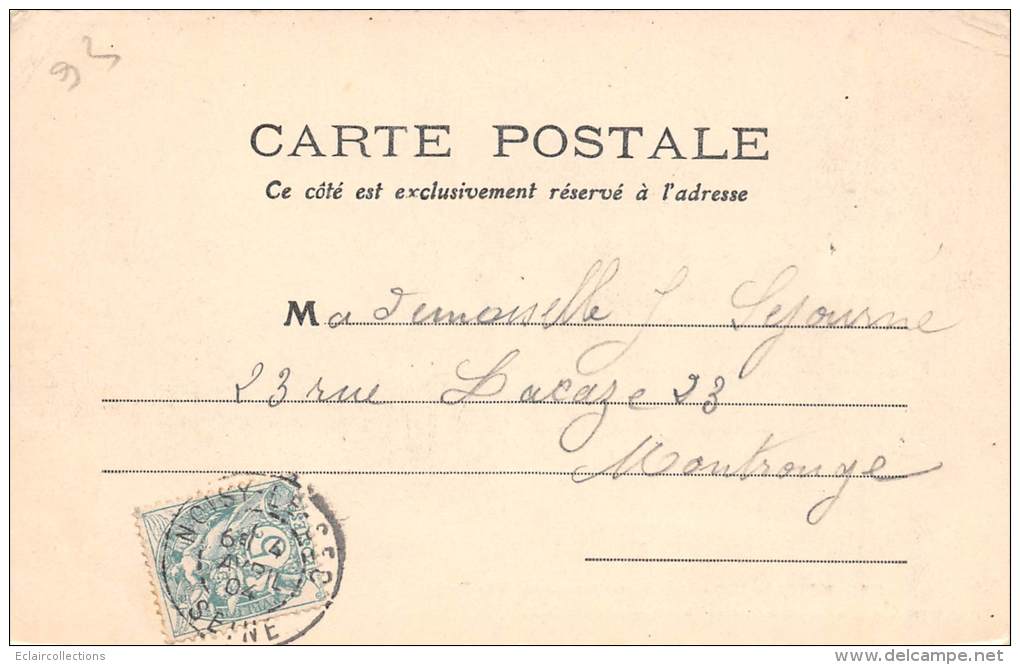 93
CARTE POSTALE
Ce côté est exclusivement réservé à l'adresse
Mademoiselle J Sejourné
23 rue Lacaze 23
Montrouge
NOISY-LE-SEC
SEINE
Eclaircollections
www.delcampe.net